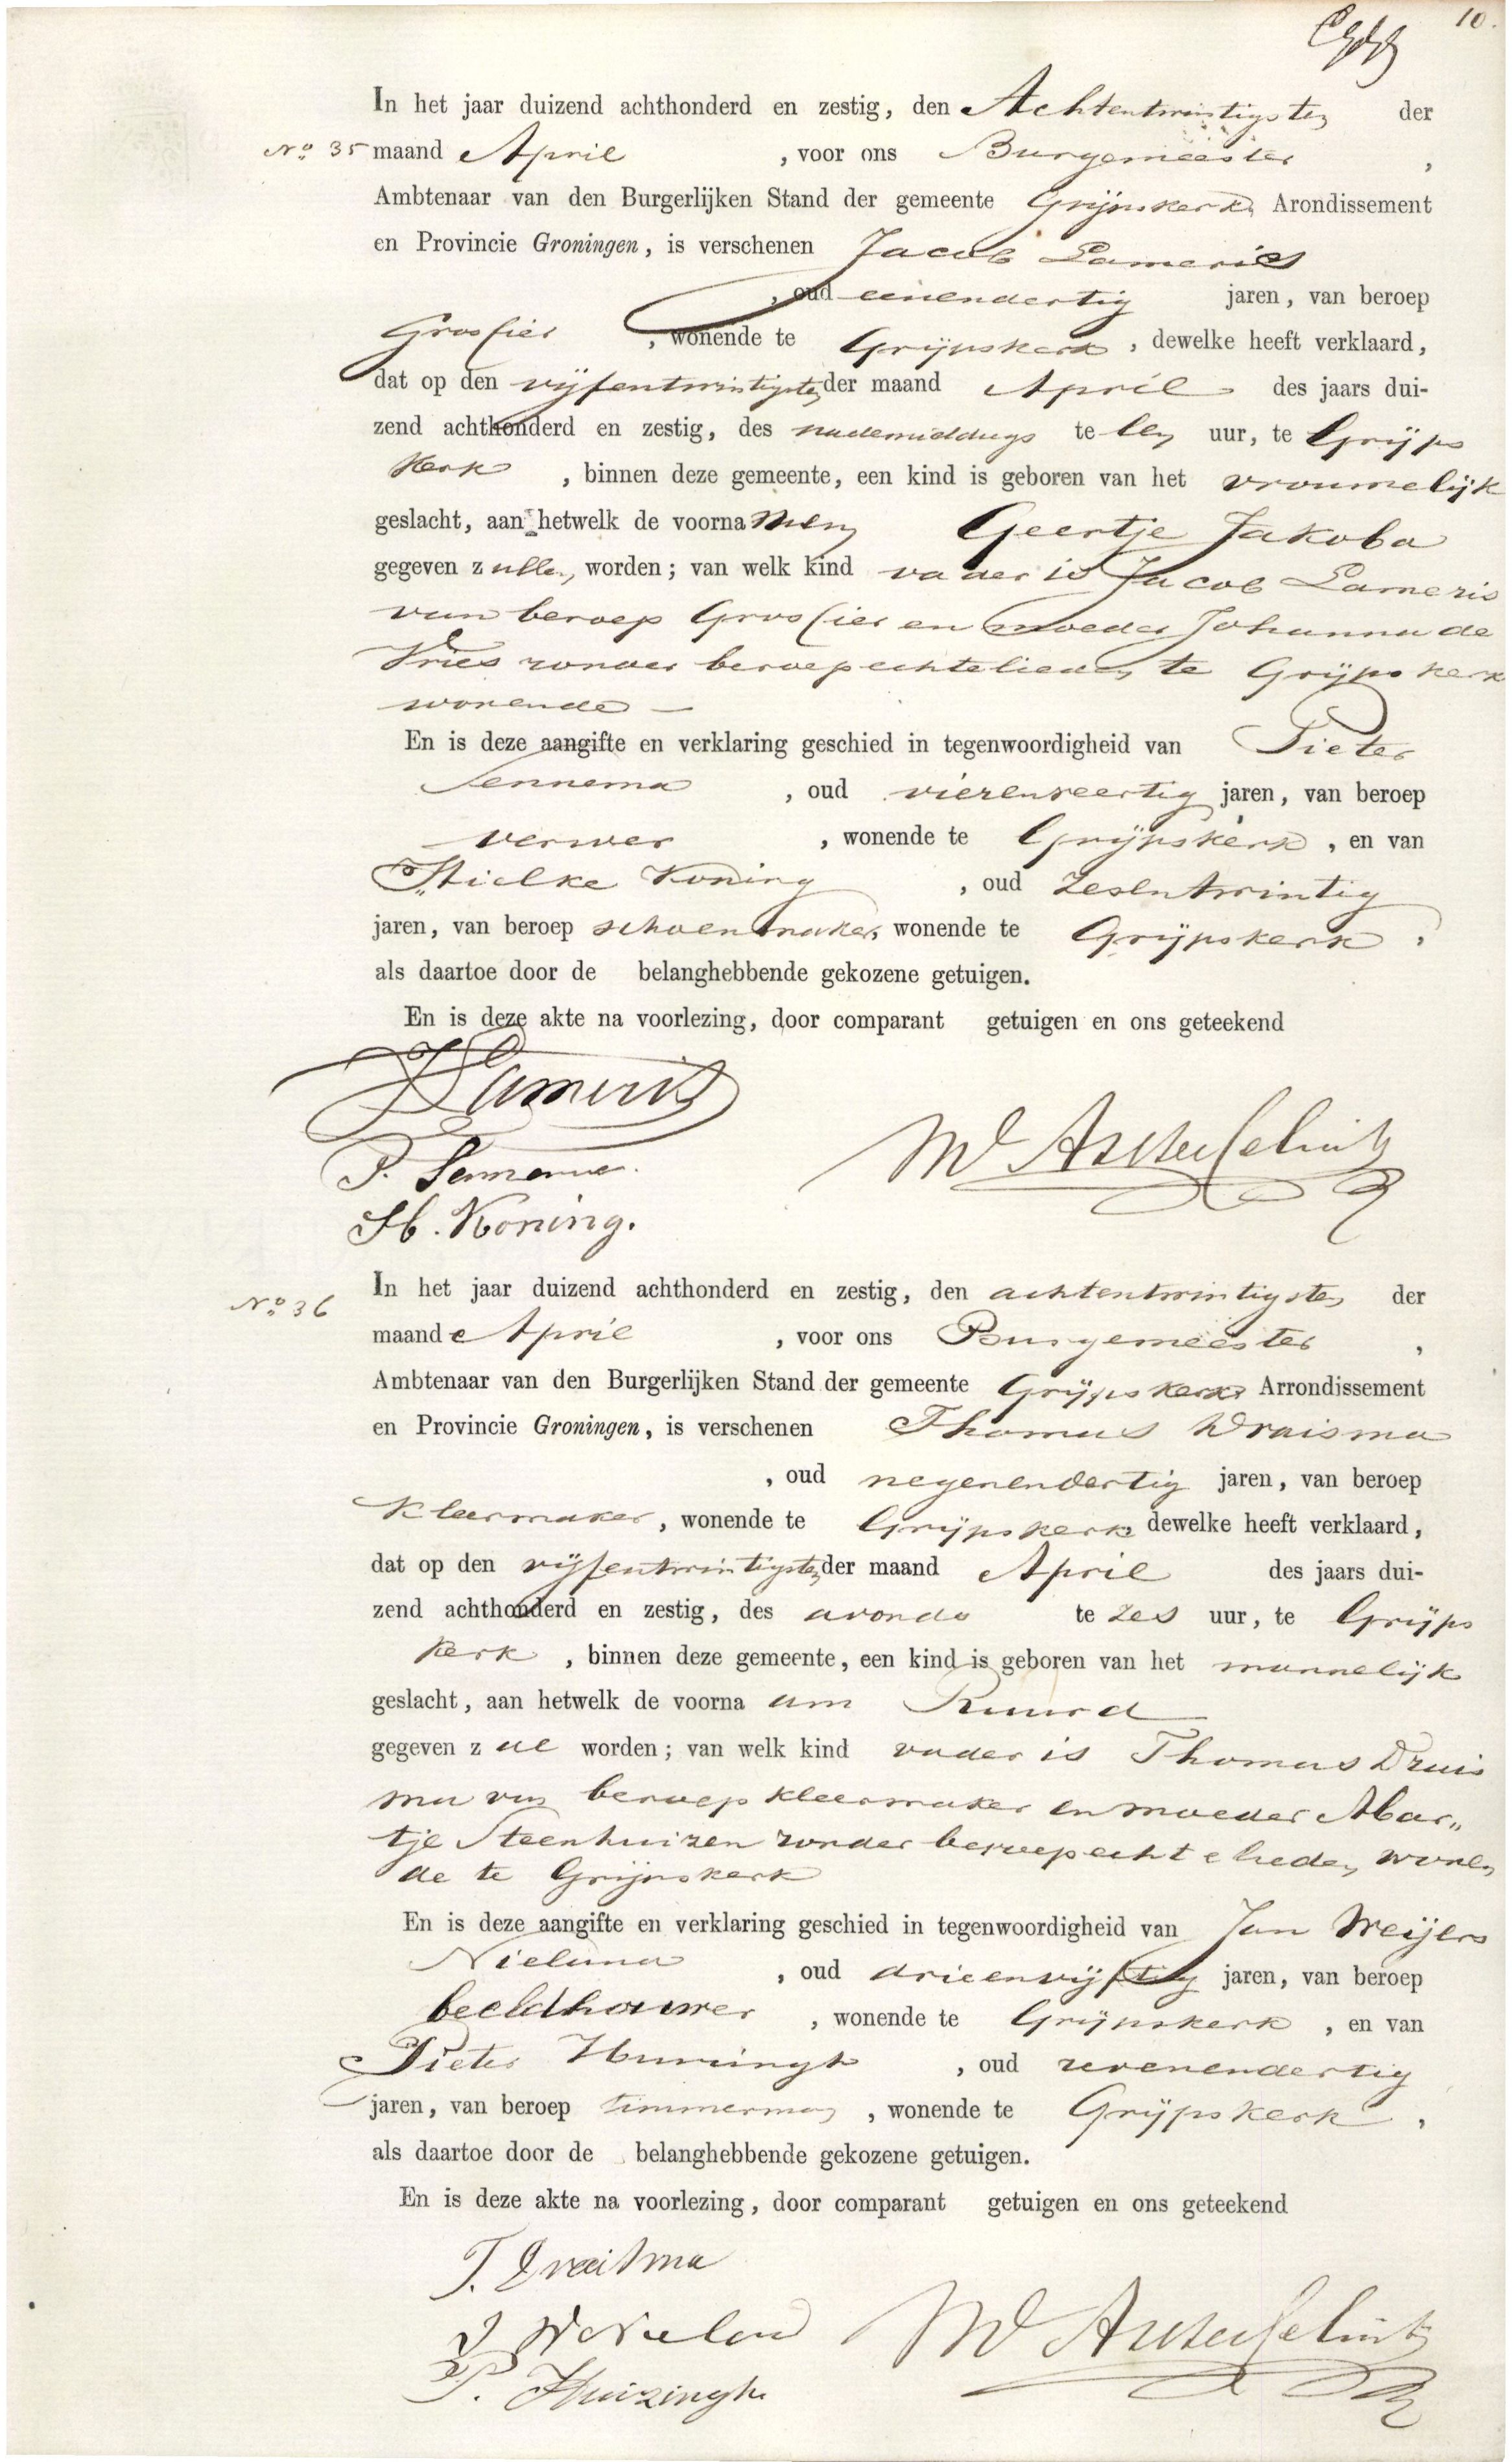 10.
In het jaar duizend achthonderd en zestig, den Achtentwintigsten der
No 35 maand April , voor ons Burgemeester ,
Ambtenaar van den Burgerlijken Stand der gemeente Grijpskerk, Arondissement
en Provincie Groningen, is verschenen Jacob Lameris
, oud eenendertig jaren, van beroep
Grossier , wonende te Grijpskerk , dewelke heeft verklaard,
dat op den vijfentwintigsten der maand April des jaars dui-
zend achthonderd en zestig, des nademiddags te een uur, te Grijps
kerk , binnen deze gemeente, een kind is geboren van het vrouwelijk
geslacht, aan hetwelk de voornamen Geertje Jakoba
gegeven zullen worden; van welk kind vader is Jacob Lameris
van beroep Grossier en moeder Johanna de
Vries zonder beroep echtelieden te Grijpskerk
wonende —
En is deze aangifte en verklaring geschied in tegenwoordigheid van Pieter
Sennema , oud vierenveertig jaren, van beroep
verwer , wonende te Grijpskerk , en van
Hielke Koning , oud zesentwintig
jaren, van beroep schoenmaker, wonende te Grijpskerk ,
als daartoe door de belanghebbende gekozene getuigen.
En is deze akte na voorlezing, door comparant getuigen en ons geteekend
J Lameris
P. Sennema.
H. Koning.
No 36 In het jaar duizend achthonderd en zestig, den achtentwintigsten der
maand April , voor ons Burgemeester ,
Ambtenaar van den Burgerlijken Stand der gemeente Grijpskerk, Arrondissement
en Provincie Groningen, is verschenen Thomas Draisma
, oud negenendertig jaren, van beroep
kleermaker , wonende te Grijpskerk dewelke heeft verklaard,
dat op den vijfentwintigsten der maand April des jaars dui-
zend achthonderd en zestig, des avonds te zes uur, te Grijps
kerk , binnen deze gemeente, een kind is geboren van het mannelijk
geslacht, aan hetwelk de voornaam Ruurd
gegeven zal worden; van welk kind vader is Thomas Drais
ma van beroep kleermaker en moeder Mar„
tje Steenhuizen zonder beroep echtelieden wonen
de te Grijpskerk
En is deze aangifte en verklaring geschied in tegenwoordigheid van Jan Weijers
, oud drieenvijftig jaren, van beroep
beeldhouwer , wonende te Grijpskerk , en van
Pieter Huizingh , oud zevenendertig
jaren, van beroep timmerman , wonende te Grijpskerk ,
als daartoe door de belanghebbende gekozene getuigen.
En is deze akte na voorlezing, door comparant getuigen en ons geteekend
T. Draisma
P. Huizingh